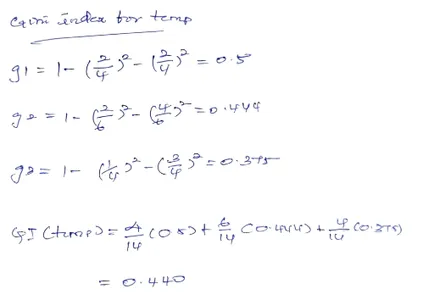 Gini index for temp
g1 = 1 - (2/4)² - (2/4)² = 0.5
g2 = 1 - (2/6)² - (4/6)² = 0.444
g3 = 1 - (1/4)² - (3/4)² = 0.375
GI (temp) = 4/14 (0.5) + 6/14 (0.444) + 4/14 (0.375)
= 0.440